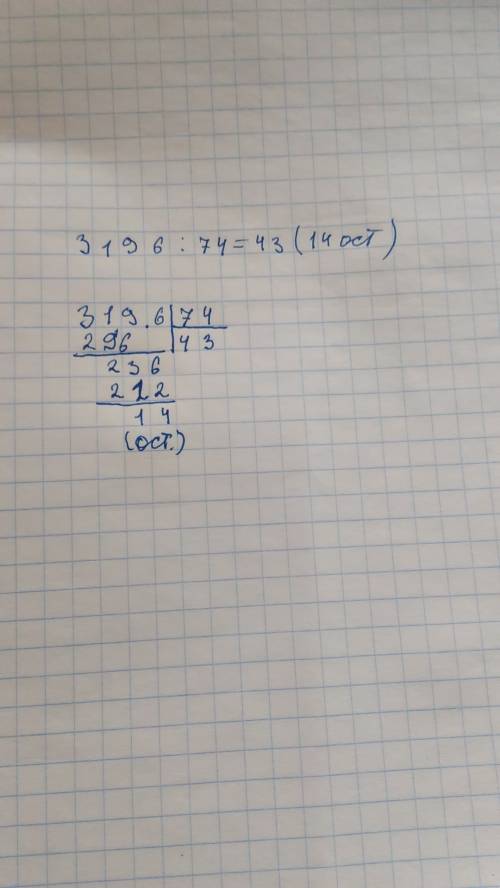 3196 : 74 = 43 (14 ост)
319.6 74
296 43
236
212
14
(ост.)